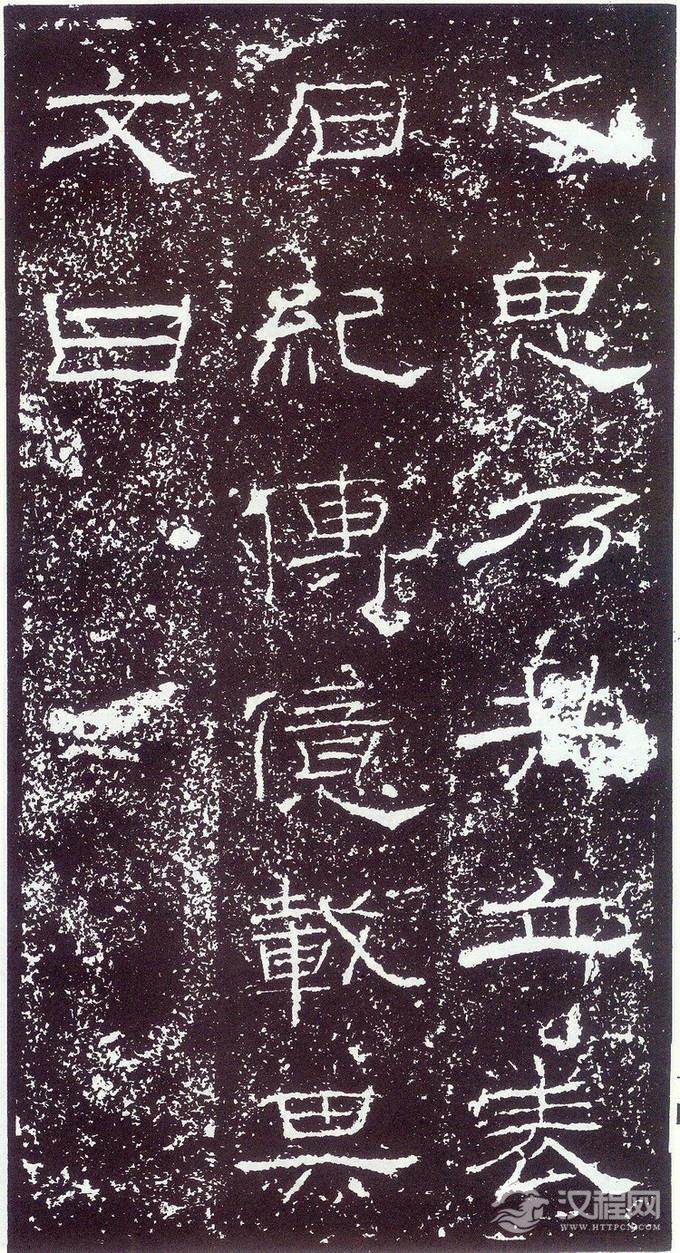 之思乃共立表
石紀傳億載其
文曰
汉程网
WWW.HTTPCN.COM